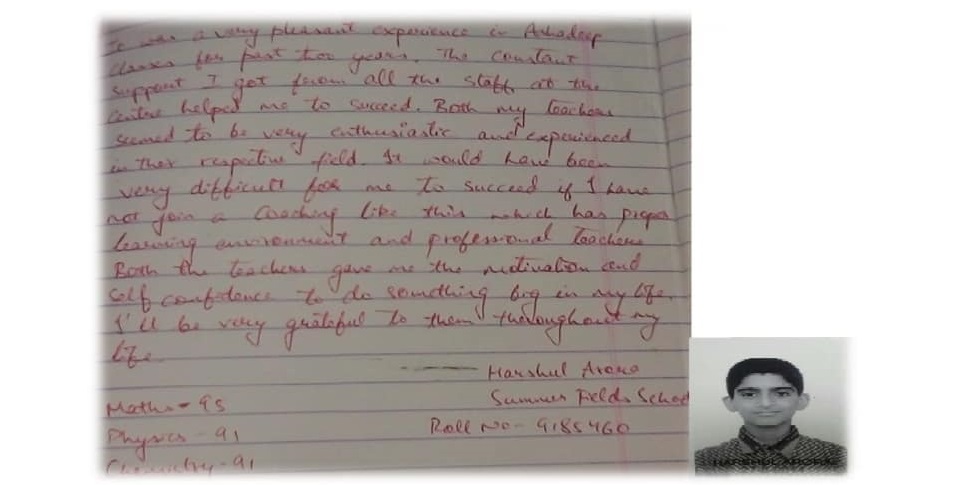 It was a very pleasant experience in Ashadeep
classes for past two years. The constant
support I got from all the staff at the
centre helped me to succeed. Both my teachers
seemed to be very enthusiastic and experienced
in ther respective field. It would have been
very difficult for me to succeed if I have
not join a coaching like this which has proper
learning environment and professional teachers
Both the teachers gave me the motivation and
self confidence to do something big in my life.
I'll be very grateful to them thoroughout my
life.
Harshul Arora
Maths - 95
Summer Fields School
Physics - 91
Roll No - 9185460
Chemistry - 91
HARSHUL ARORA